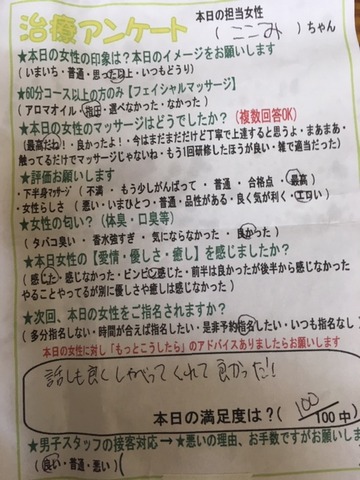 治療アンケート
本日の担当女性
( ここみ )ちゃん
★本日の女性の印象は?本日のイメージをお願いします
(いまいち・普通・思った以上・いつもどうり)
★60分コース以上の方のみ【フェイシャルマッサージ】
(アロマオイル・指圧・選べなかった・なかった)
★本日の女性のマッサージはどうでしたか?(複数回答OK)
(最高だね!・良かったよ!・今はまだまだだけど丁寧で上達すると思うよ・まあまあ・
触ってるだけでマッサージじゃないね・もう1回研修したほうが良い・雑で適当だった)
★評価お願いします
・下半身マッサージ(不満・もう少しがんばって・普通・合格点・最高)
・女性らしさ(悪い・いまひとつ・普通・品性がある・良く気が利く・エロい)
★女性の匂い?(体臭・口臭等)
(タバコ臭い・香水強すぎ・気にならなかった・良かった)
★本日女性の【愛情・優しさ・癒し】を感じましたか?
(感じた・感じなかった・ビンビン感じた・前半は良かったが後半から感じなかった
やることやってるが別に優しさや癒しは感じなかった)
★次回、本日の女性をご指名されますか?
(多分指名しない・時間が合えば指名したい・是非予約指名したい・いつも指名なし)
本日の女性に対し「もっとこうしたら」のアドバイスありましたらお願いします
話しも良くしゃべってくれて良かった!
本日の満足度は?( 100/100中)
★男子スタッフの接客対応→★悪いの理由、お手数ですがお願いしま
(良い・普通・悪い)(